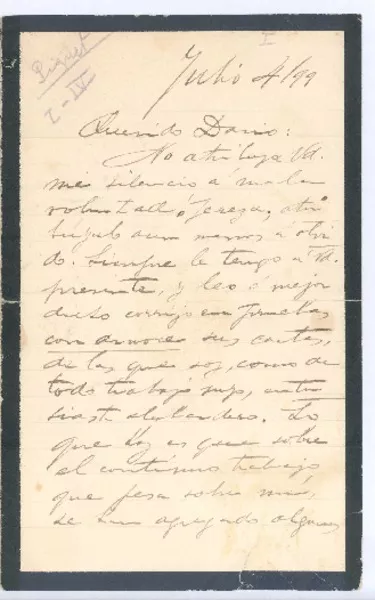 Piquet
I-IV
I
Julio 4/99
Querido Dario:
No atribuya Vd.
mi silencio á mala
voluntad ó pereza, atri
búyalo aun menos a olvi
do. Siempre le tengo á Vd.
presente, y leo ó mejor
dicho corrijo en pruebas
con amore sus cartas,
de las que soy, como de
todo trabajo suyo, entu
siasta
Lo
que hay es que sobre
el contínuo trabajo
que pesa sobre mi,
se han agregado algunos